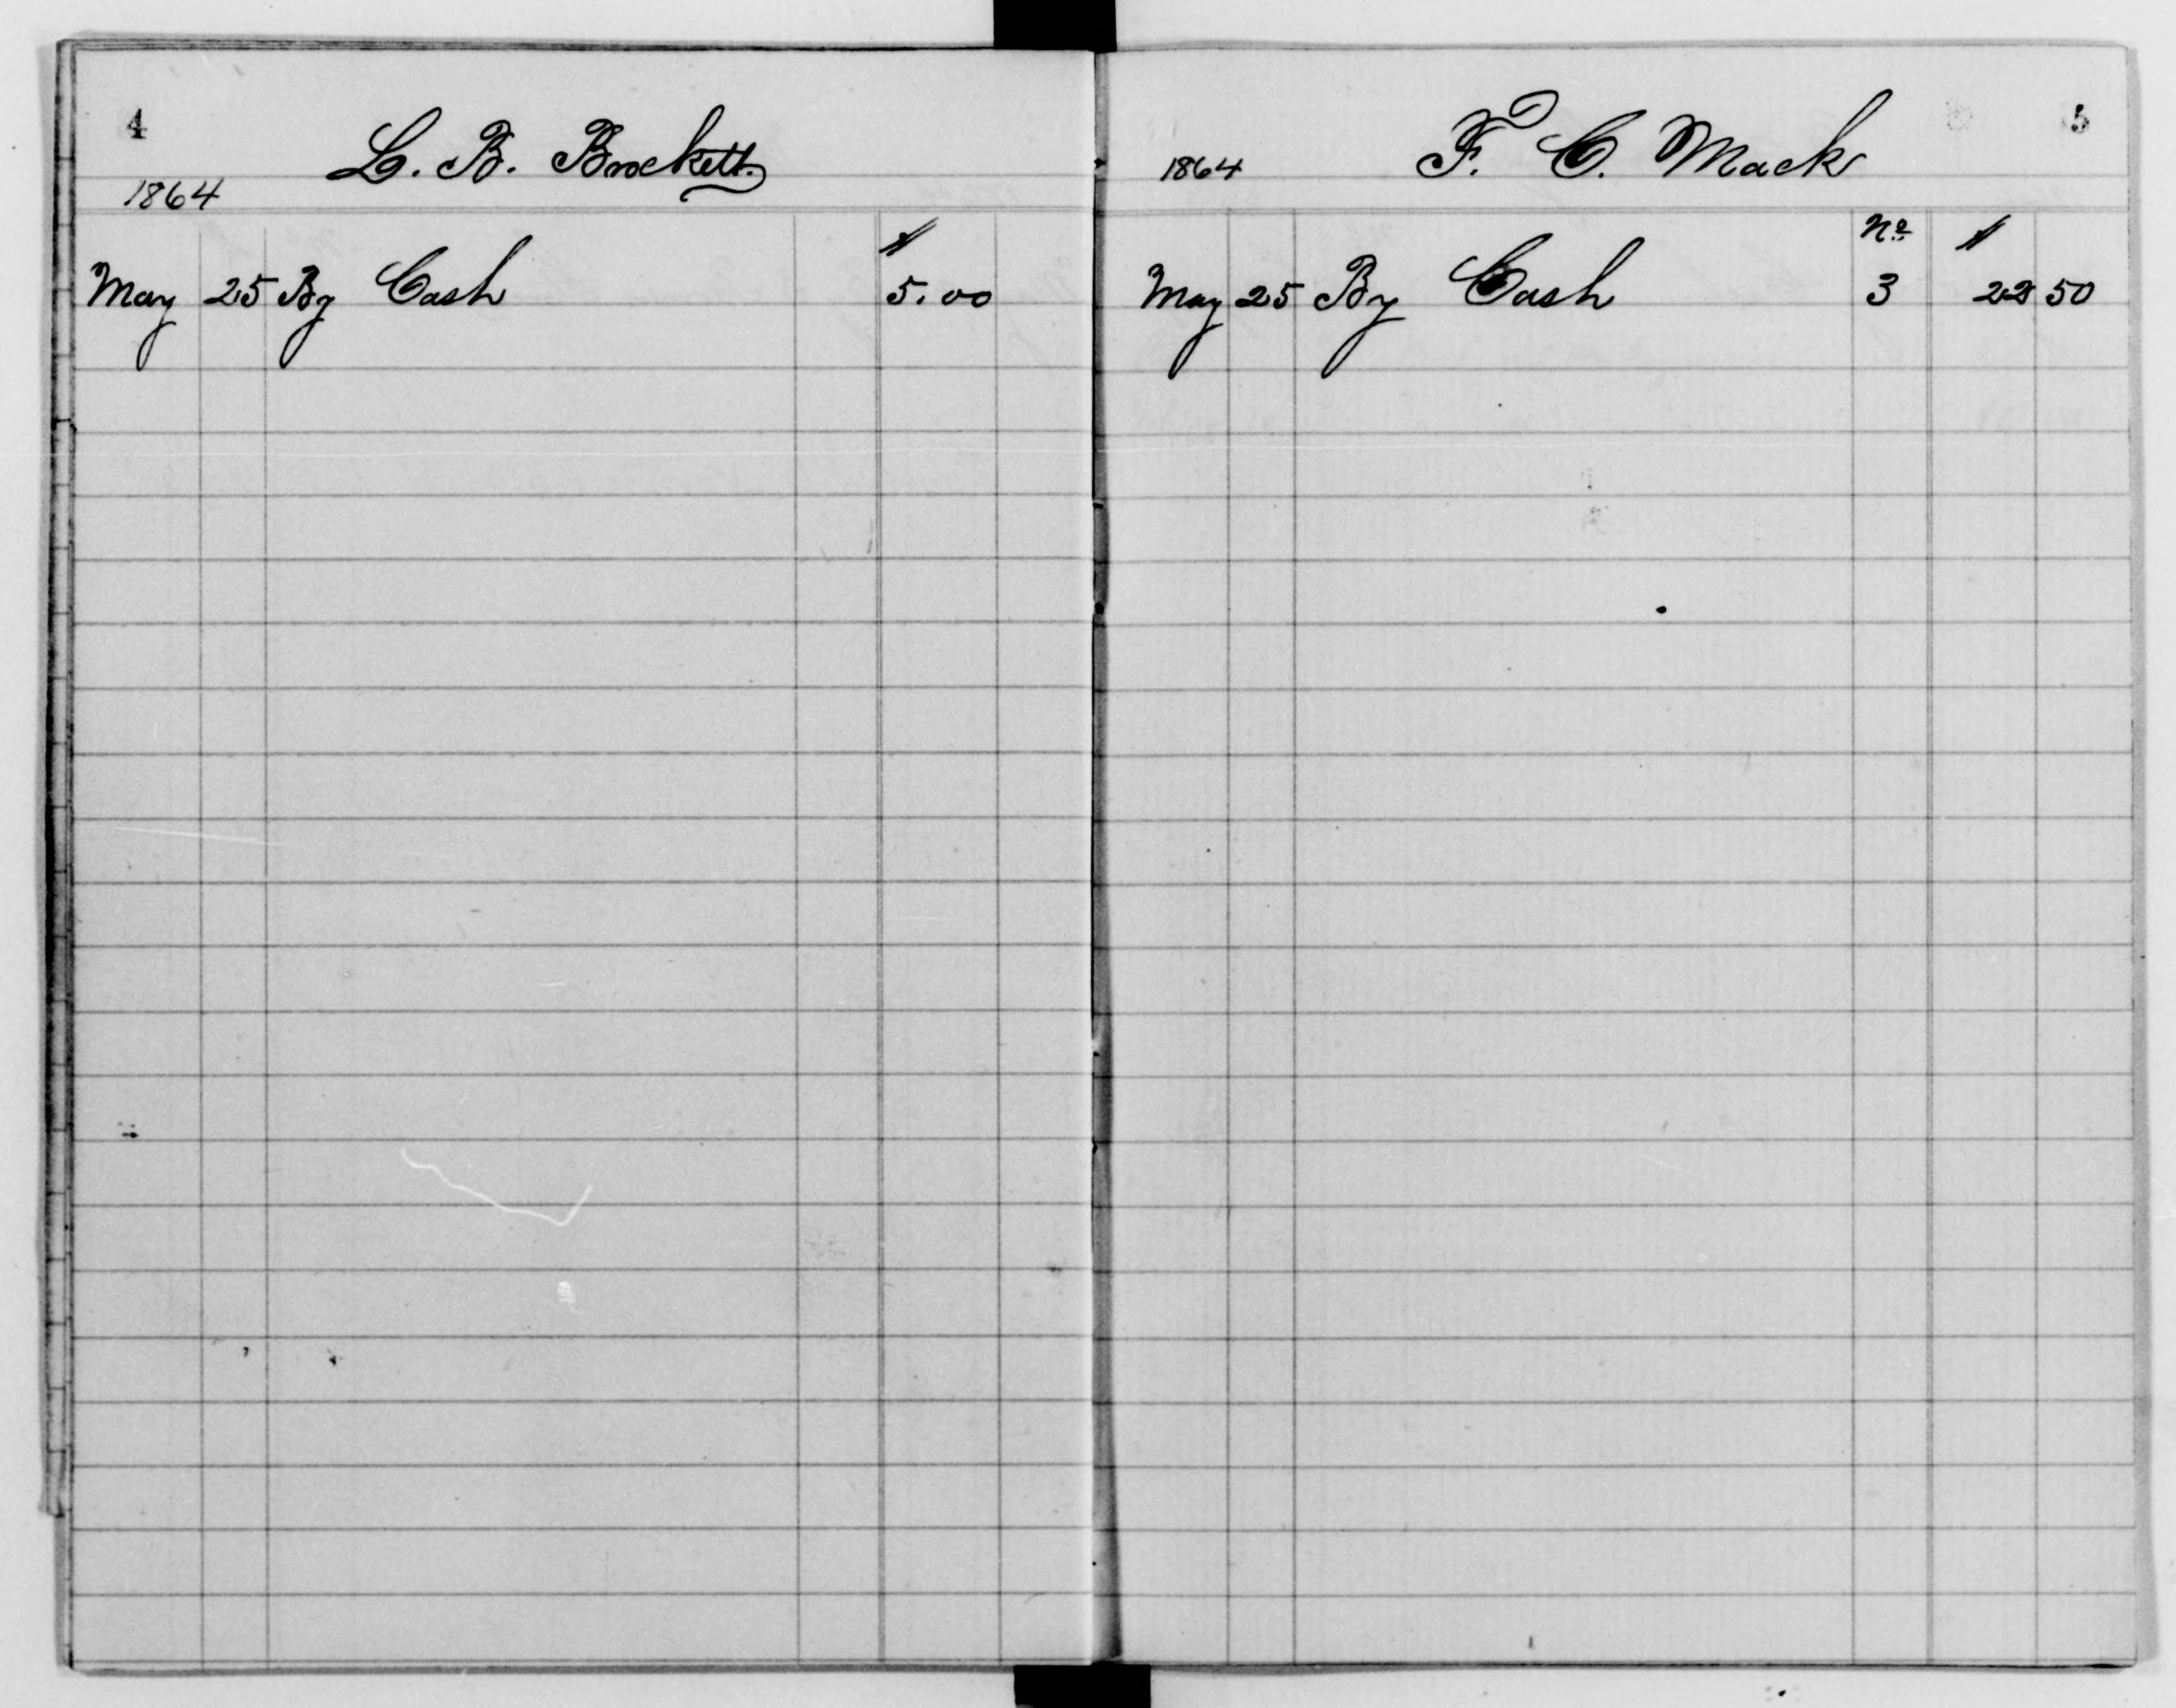 4
L. B. Brockett.
1864
$
May 25 By Cash 5.00
5
1864 F. C. Mack
No. $
May 25 By Cash 3 22 50